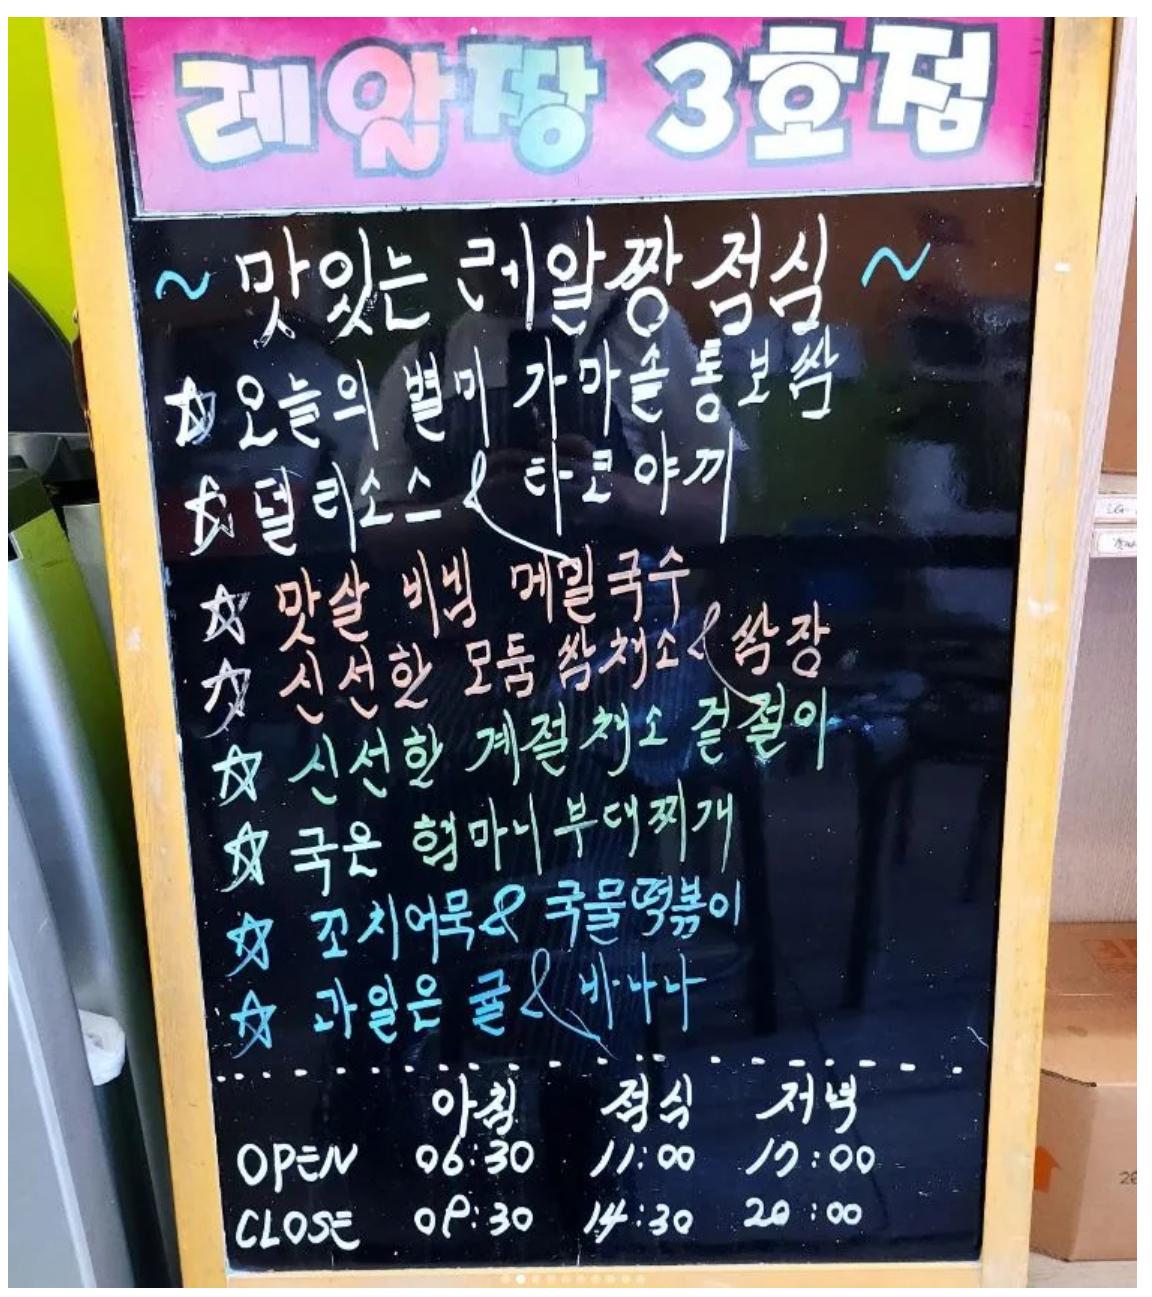 레알짱 3호점
~ 맛있는 레알짱 점심 ~
☆ 오늘의 별미 가마솥통보쌈
☆ 덜리소스 & 타코야끼
☆ 맛살 비빔 메밀국수
☆ 신선한 모둠 쌈채소 & 쌈장
☆ 신선한 계절 채소 겉절이
☆ 국은 할마니 부대찌개
☆ 꼬치어묵 & 국물떡볶이
☆ 과일은 귤 & 바나나
아침 점심 저녁
OPEN 06:30 11:00 17:00
CLOSE 09:30 14:30 20:00